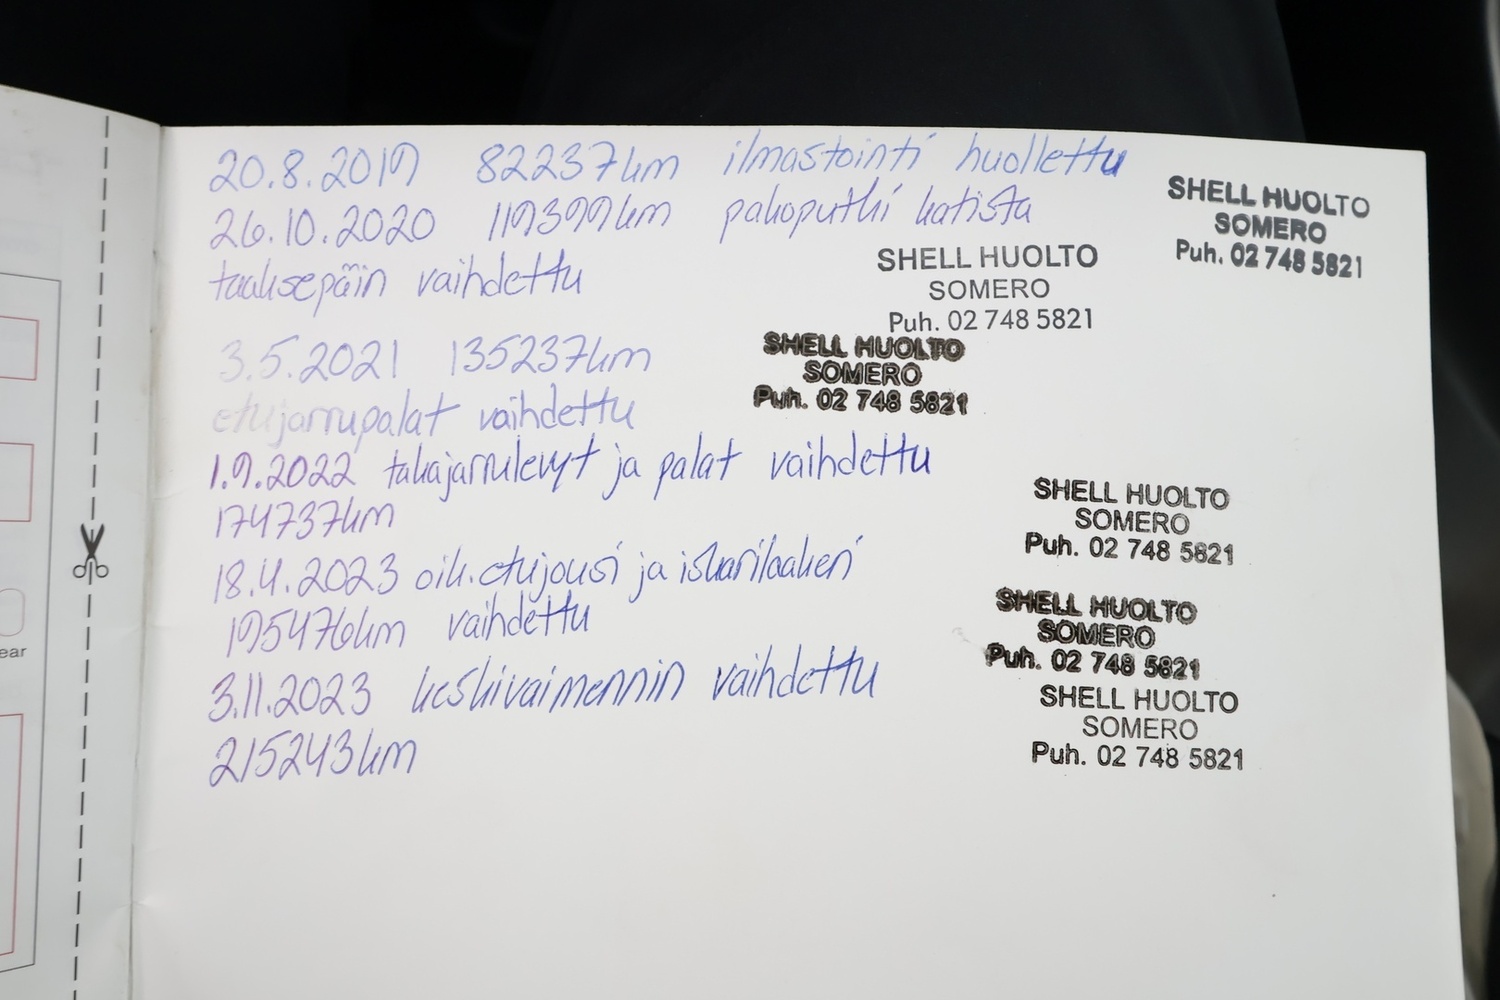 20.8.2019 82237km ilmastointi huollettu
SHELL HUOLTO
SOMERO
Puh. 02 748 5821
26.10.2020 119399km pakoputki katista
taaksepäin vaihdettu
SHELL HUOLTO
SOMERO
Puh. 02 748 5821
3.5.2021 135237km
etujarrupalat vaihdettu
SHELL HUOLTO
SOMERO
Puh. 02 748 5821
1.9.2022 takajarrulevyt ja palat vaihdettu
174737km
SHELL HUOLTO
SOMERO
Puh. 02 748 5821
18.4.2023 oik.etujousi ja iskarilaakeri
195476km vaihdettu
SHELL HUOLTO
SOMERO
Puh. 02 748 5821
3.11.2023 keskivaimennin vaihdettu
215243km
SHELL HUOLTO
SOMERO
Puh. 02 748 5821